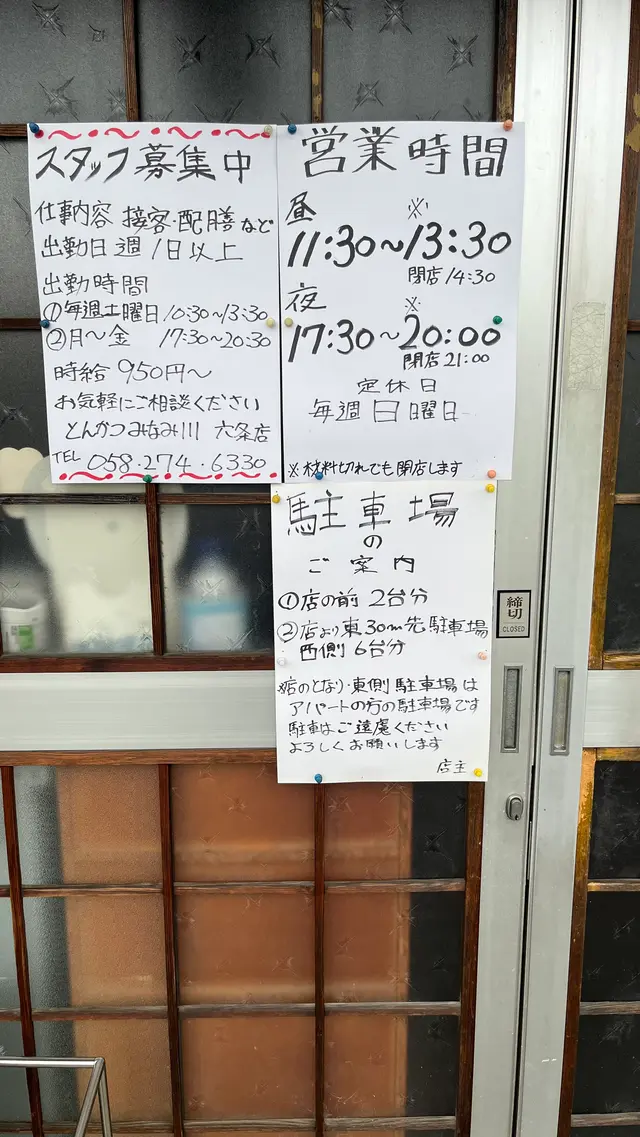 スタッフ募集中
仕事内容 接客・配膳など
出勤日週1日以上
出勤時間
①毎週土曜日10:30~13:30
②月~金 17:30~20:30
時給 950円~
お気軽にご相談ください
とんかつみなみ川 六条店
TEL 058・274・6330
営業時間
昼 ※
11:30~13:30
閉店14:30
夜 ※
17:30~20:00
閉店21:00
定休日
毎週日曜日
※材料切れでも閉店します
駐車場
の
ご案内
①店の前 2台分
②店より東30m先駐車場
西側6台分
※店のとなり・東側駐車場は
アパートの方の駐車場です
駐車はご遠慮ください
よろしくお願いします
店主
締切
CLOSED